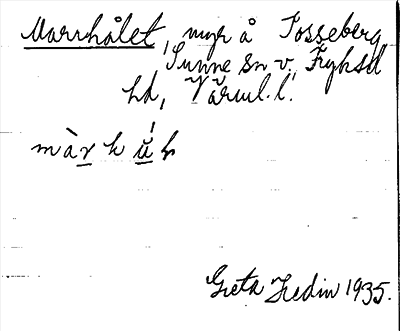 Marrhålet, myr å Tosseberg
Sunne sn v. Fryksd
hd, Värml. l.
Greta Hedin 1935.